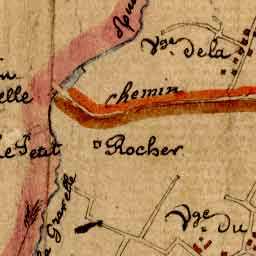 Vge de la
elle
Chemin
Petit Rocher
la Gravelle
Vge du